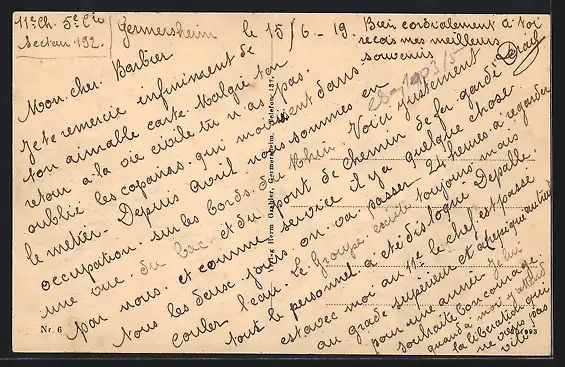 11e Ch. 5e Cie
Secteur 192.
Germersheim le 15/6 - 19.
Mon cher Barbier
Je te remercie infiniment de
ton aimable carte. Malgré ton
retour à la vie civile tu n'as pas
oublié les copains qui moisissent dans
le métier. Depuis avril nous sommes en
occupation sur les bords du Rhin. Voici justement
une vue du bac et du pont de chemin de fer gardé
par nous et comme service il y a quelque chose
tous les deux jours on va passer 24 heures à regarder
couler l'eau. Le Groupe existe toujours mais
tout le personnel a été disloqué Depalle
est avec moi au 11e le chef est passé
au grade supérieur et
pour une année Je lui
souhaite bon courage
quand à moi j'attend
la libération qui
ne viens pas
vite
Bien cordialement à toi
reçois mes meilleurs
souvenirs
Verlag Herm Gauhler, Germersheim, Telefon 137.
Nr. 6